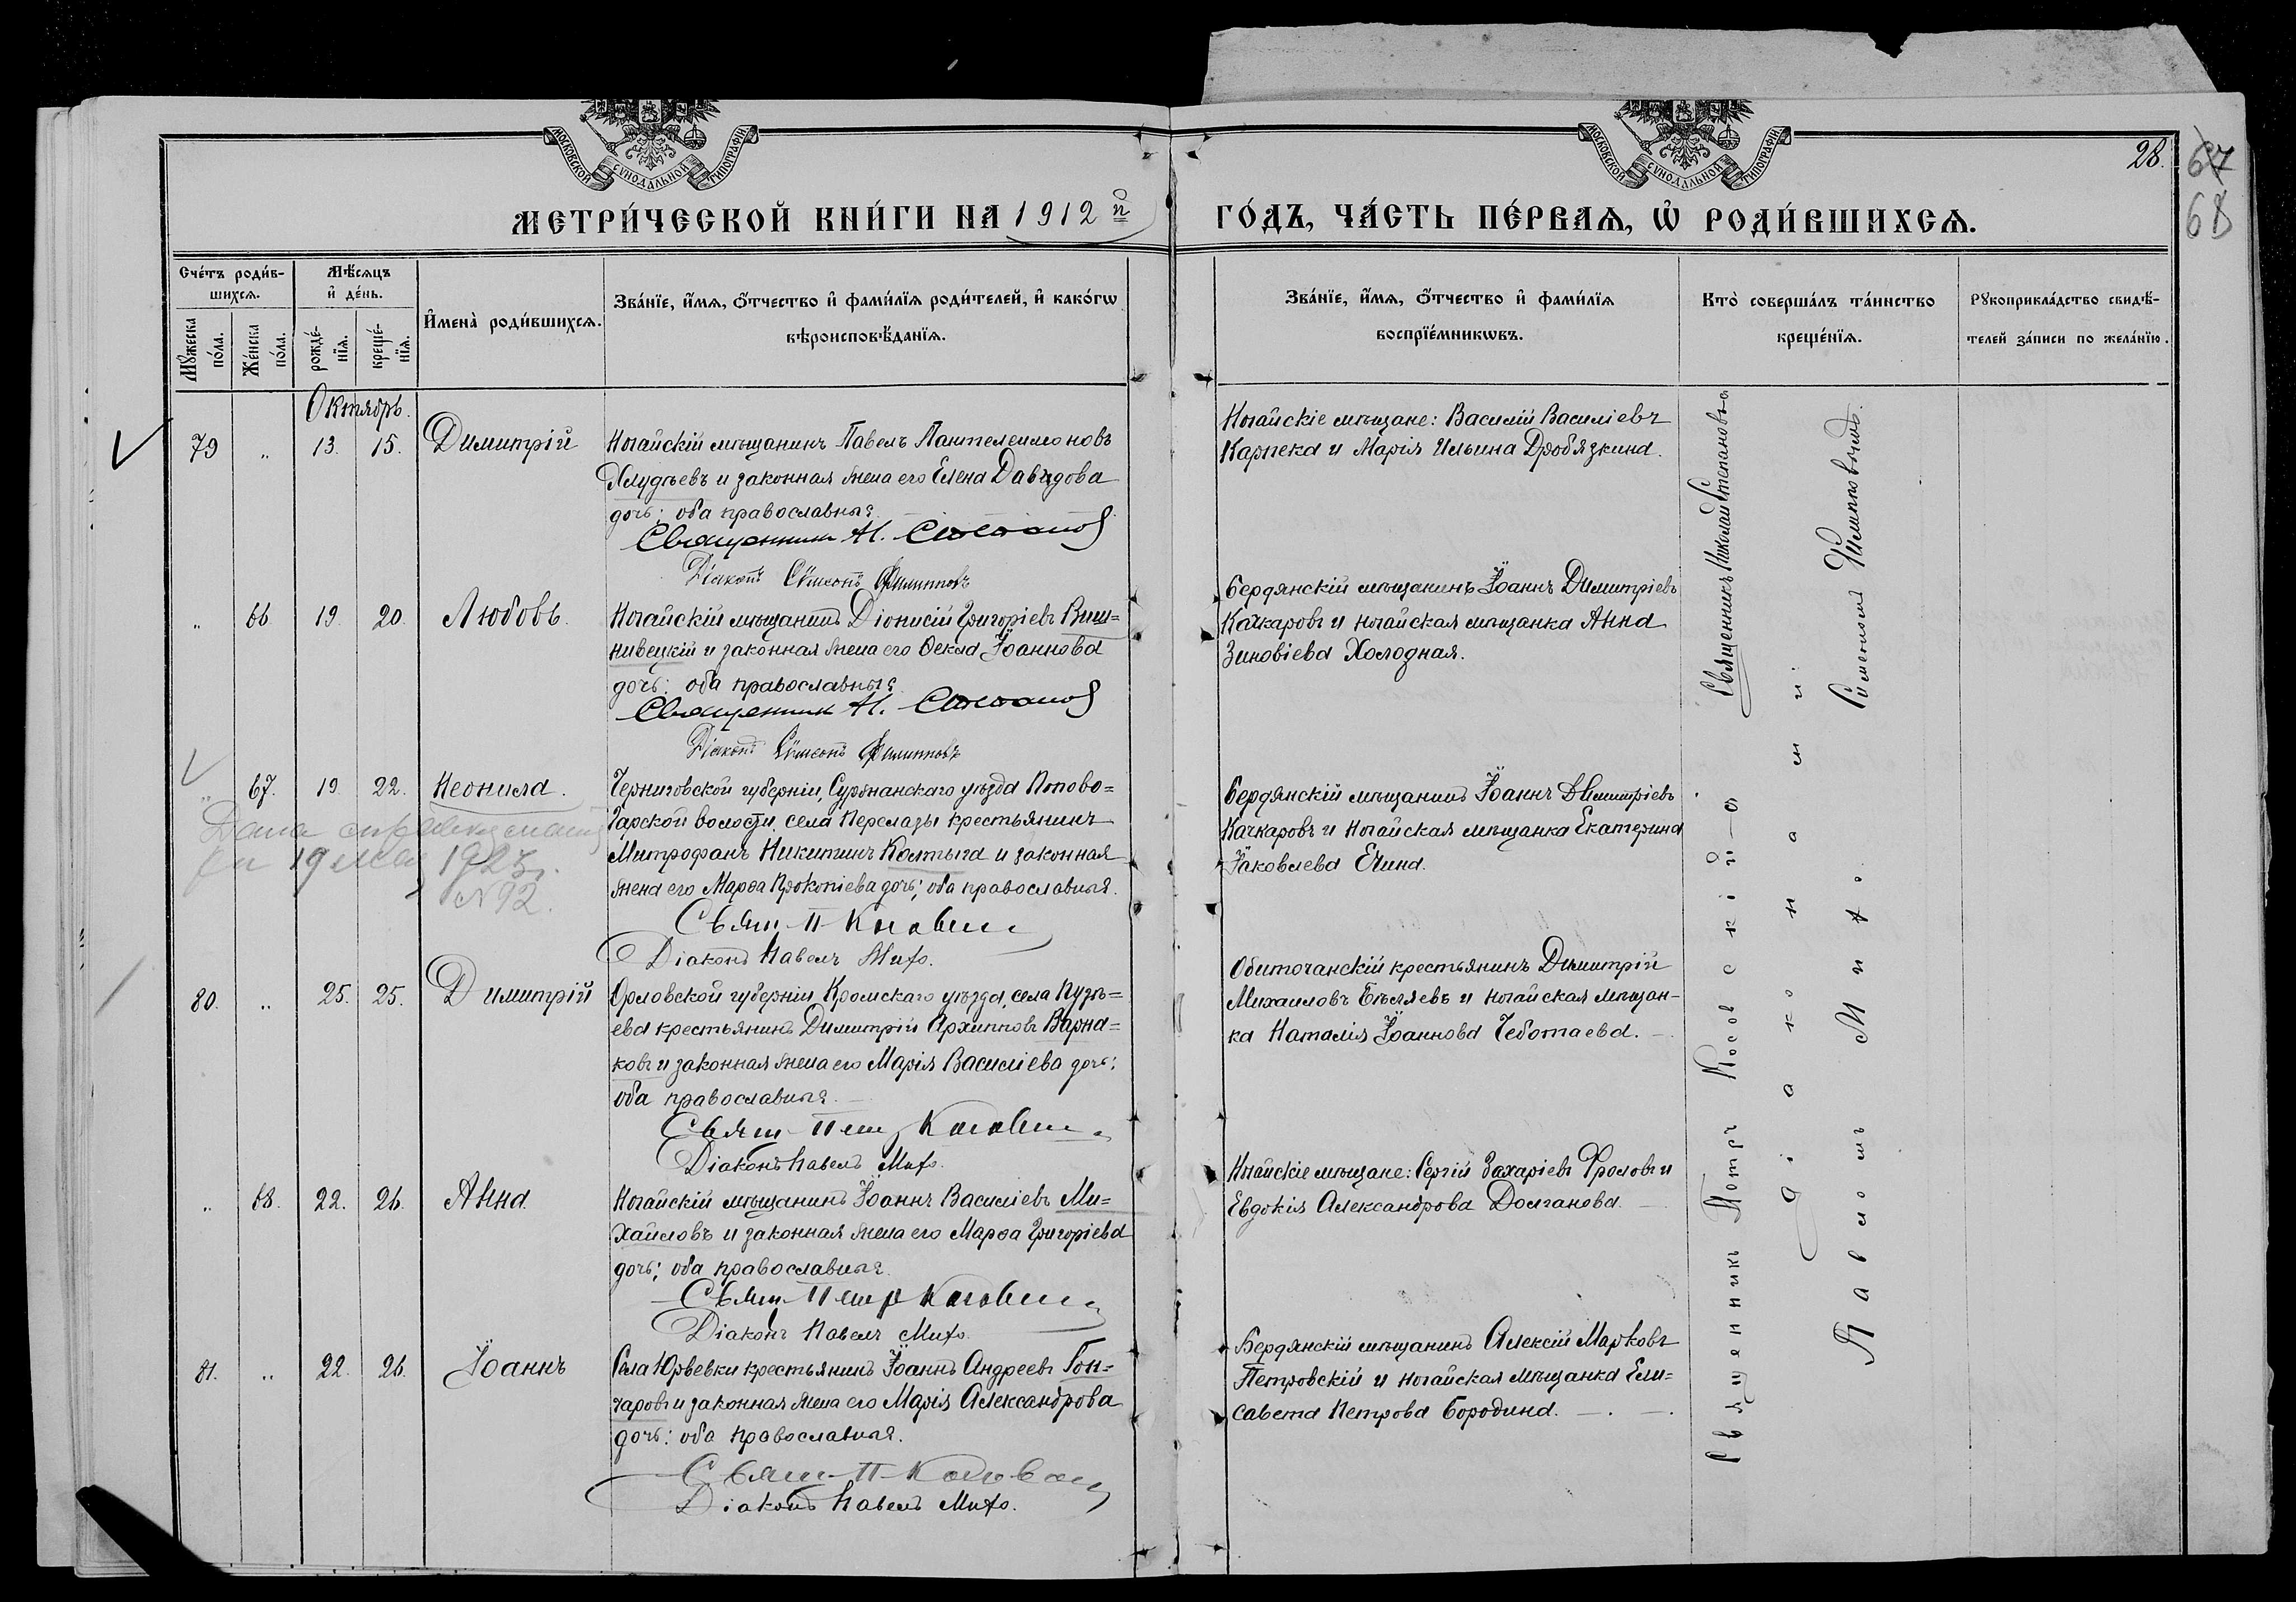 МОСКОВСКОЙ СѴНОДАЛЬНОЙ ТИПОГРАФІИ
МОСКОВСКОЙ СѴНОДАЛЬНОЙ ТИПОГРАФІИ
28.
67
68
МЕТРИ́ЧЕСКОЙ КНИ́ГИ НА 1912й
ГО́ДЪ, ЧА́СТЬ ПЕ́РВАѦ, Ѡ РОДИ́ВШИХСѦ.
Сче́тъ роди́в-
шихсѧ.
Мꙋжеска
по́ла.
Же́нска
по́ла.
Мѣ́сѧцъ
и҆ де́нь.
рожде́-
нїѧ.
креще́-
нїѧ.
И҆мена̀ роди́вшихсѧ.
Зва́нїе, и҆́мѧ, ѻ҆́тчество и҆ фами́лїѧ роди́телей, и҆ како́гѡ
вѣроисповѣ́данїѧ.
Зва́нїе, и҆́мѧ, ѻ҆́тчество и҆ фами́лїѧ
воспрїе́мникѡвъ.
Кто̀ соверша́лъ та́инство
креще́нїѧ.
Рꙋкоприкла́дство свидѣ́-
телей за́писи по жела́нїю.
Октябрь.
79 „ 13. 15. Димитрій
Ногайскій мѣщанинъ Павелъ Пантелеимоновъ
Хлудѣевъ и законная жена его Елена Давидова
дочь; оба православные.
Священникъ Н. Степановъ
Діаконъ Сѵмеонъ Филипповъ
Ногайскіе мѣщане: Василій Василіевъ
Карпека и Марія Ильина Дробязкина.
„ 66 19. 20. Любовь.
Ногайскій мѣщанинъ Діонисій Григоріевъ Виш=
нивецкій и законная жена его Ѳекла Іоаннова
дочь: оба православные
Священник Н. Степановъ
Діаконъ Сѵмеонъ Филипповъ
Бердянскій мѣщанинъ Іоаннъ Димитріевъ
Качкаровъ и ногайская мѣщанка Анна
Зиновіева Холодная.
„ 67. 19. 22. Неонила.
Дана справка
19 мая 1923 г.
№ 92.
Черниговской губерніи, Суражскаго уѣзда Попово=
Гарской волости села Перелазы крестьянинъ
Митрофанъ Никитинъ Колтыга и законная
жена его Марѳа Прокопіева дочь; оба православные.
Свящ. П. Косовск
Діаконъ Павелъ Мито.
Бердянскій мѣщанинъ Іоаннъ Димитріевъ
Качкаровъ и ногайская мѣщанка Екатерина
Іаковлева Ечина.
80. „ 25. 25. Димитрій
Орловской губерніи, Кромскаго уѣзда, села Пузѣ=
ева крестьянинъ Димитрій Архипповъ Варна=
ковъ и законная жена его Марія Василіева дочь:
оба православные.
Свящ. Петр Косовск
Діаконъ Павелъ Мито.
Обиточанскій крестьянинъ Димитрій
Михаиловъ Бѣляевъ и ногайская мѣщан-
ка Наталія Іоаннова Чеботаева.
„ 68. 22. 26. Анна.
Ногайскій мѣщанинъ Іоаннъ Василіевъ Ми=
хайловъ и законная жена его Марѳа Григоріева
дочь; оба православные.
Свящ. Петр Косовск
Діаконъ Павелъ Мито.
Ногайскіе мѣщане: Сергій Захаріевъ Фроловъ и
Евдокія Александрова Долганова.
81. „ 22. 26. Іоаннъ
Села Юрьевки крестьянинъ Іоаннъ Андреевъ Гон=
чаровъ и законная жена его Марія Александрова
дочь: оба православные.
Свящ. П. Косовск
Діаконъ Павелъ Мито.
Бердянскій мѣщанинъ Алексій Марковъ
Петровскій и ногайская мѣщанка Ели=
савета Петрова Бородина.
Священникъ Николай Степановъ
Сѵмеонъ Филипповъ
Священникъ Петръ Косовскій съ
діакономъ
Павломъ Мито.